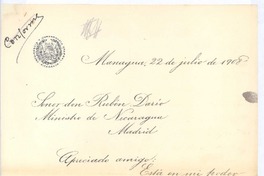 Conforme
Managua, 22 de julio de 1908
Señor don Rubén Darío
Ministro de Nicaragua
Madrid
Apreciado amigo:
Está en mi poder